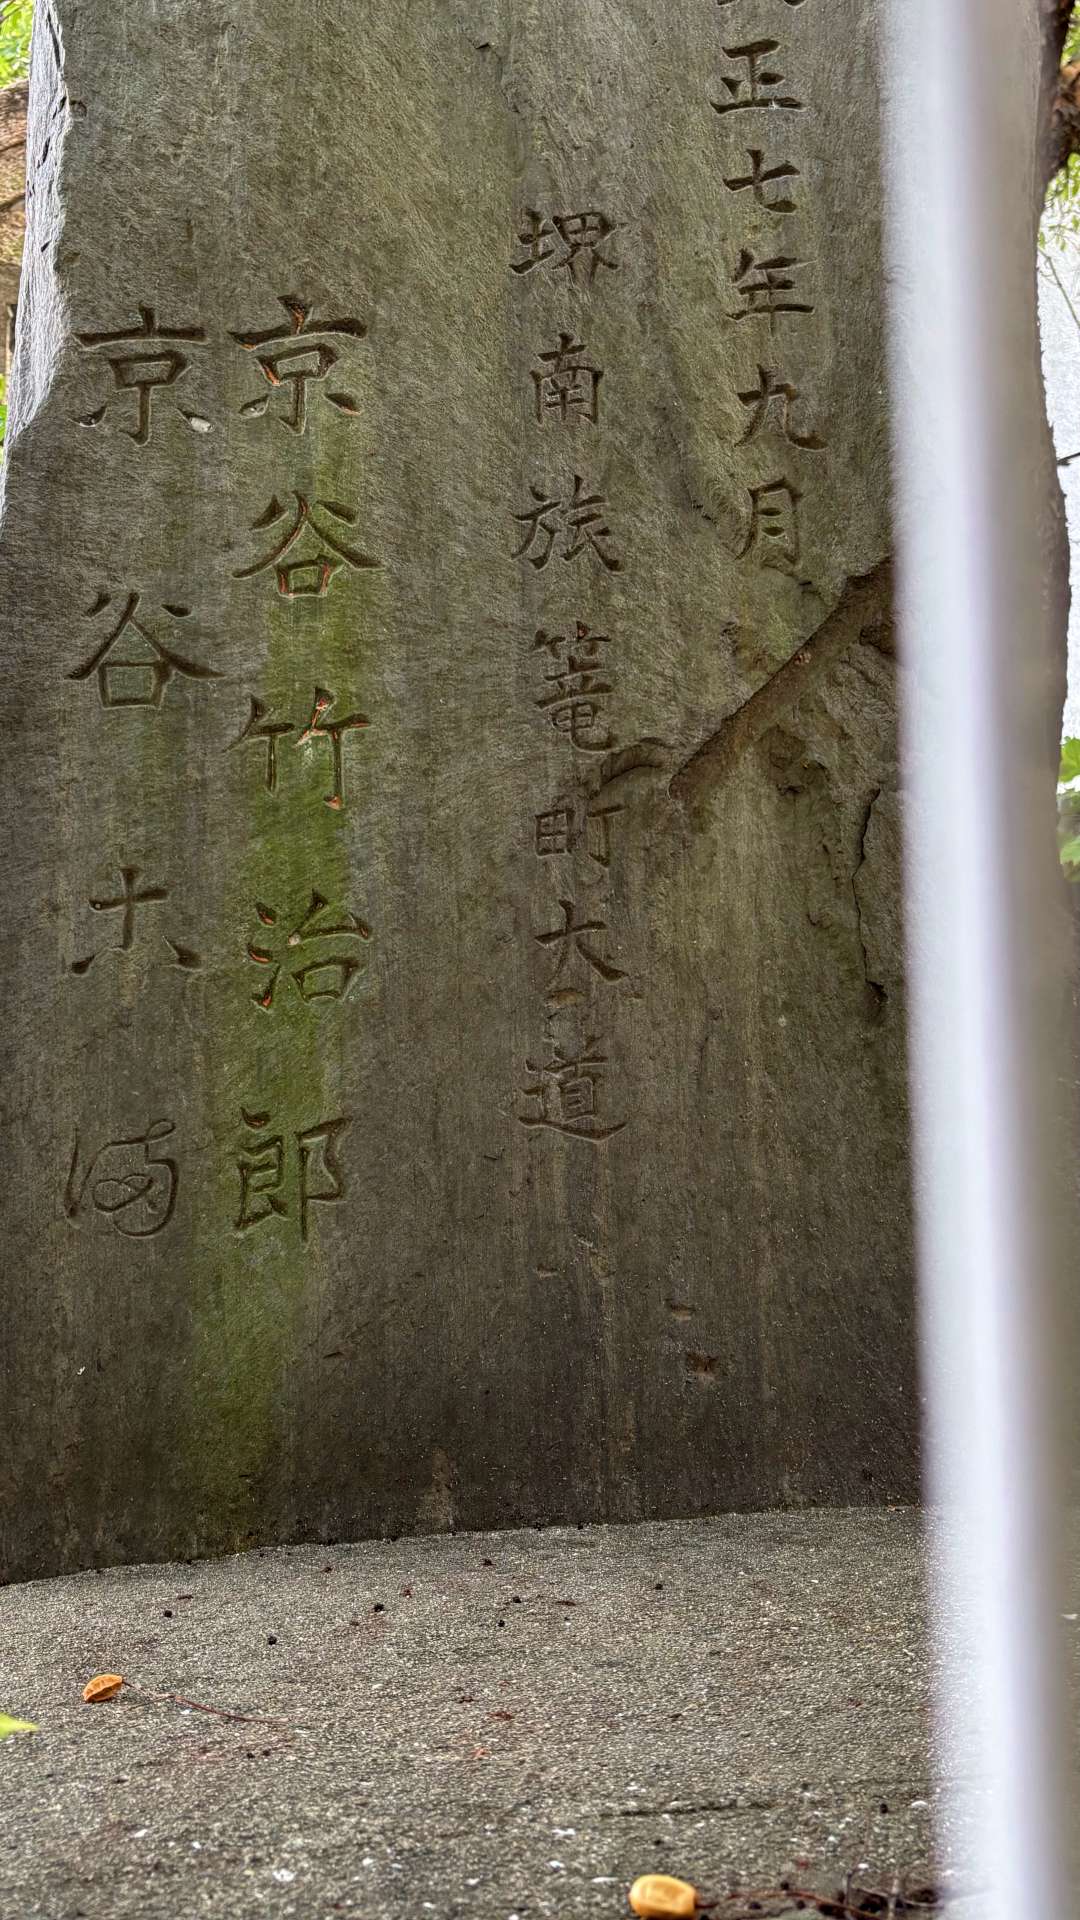 正七年九月
堺南旅篭町大道
京谷竹治郎
京谷